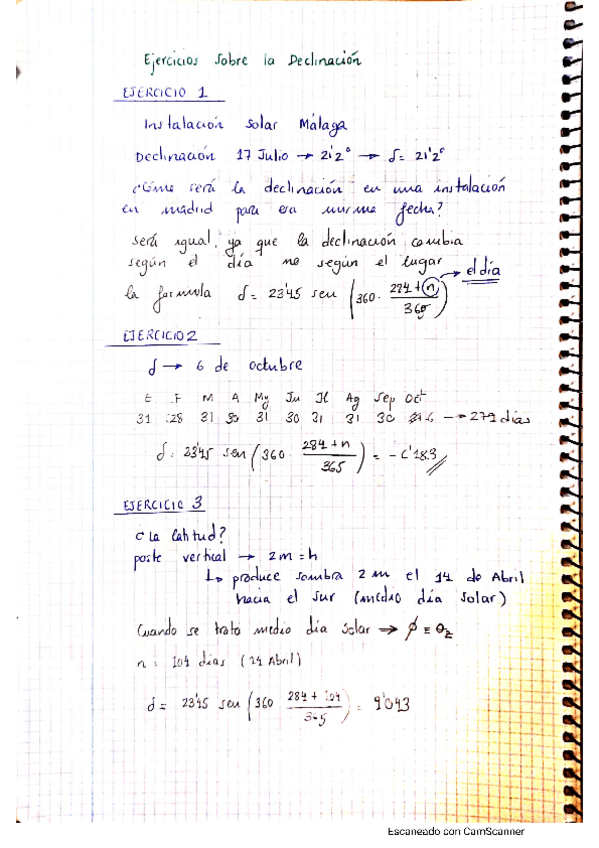 Ejercicios sobre la Declinación
EJERCICIO 1
Instalación solar Málaga
Declinación 17 Julio → 21'2° → δ = 21'2°
¿Cómo será la declinación en una instalación
en madrid para esa misma fecha?
será igual, ya que la declinación cambia
según el día no según el lugar
la formula δ = 23'45 sen (360 · 284 + n / 365) → el día
EJERCICIO 2
δ → 6 de octubre
E F M A My Ju Jl Ag Sep Oct
31 28 31 30 31 30 31 31 30 6 → 279 días
δ = 23'45 sen (360 · 284 + n / 365) = - 6'183
EJERCICIO 3
¿ La latitud?
poste vertical → 2 m = h
↳ produce sombra 2 m el 14 de Abril
hacia el sur (medio día solar)
Cuando se trata medio día solar → ϕ = θz
n = 104 días (14 Abril)
δ = 23'45 sen (360 284 + 104 / 365) = 9'043
Escaneado con CamScanner